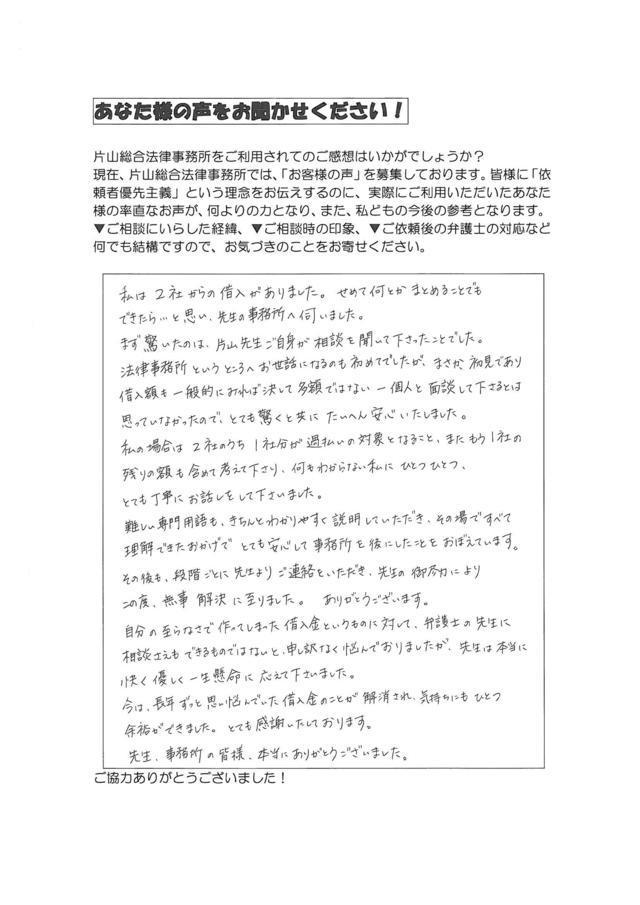 あなた様の声をお聞かせください！
片山総合法律事務所をご利用されてのご感想はいかがでしょうか？
現在、片山総合法律事務所では、「お客様の声」を募集しております。皆様に「依
頼者優先主義」という理念をお伝えするのに、実際にご利用いただいたあなた
様の率直なお声が、何よりの力となり、また、私どもの今後の参考となります。
▼ご相談にいらした経緯、▼ご相談時の印象、▼ご依頼後の弁護士の対応など
何でも結構ですので、お気づきのことをお寄せください。
私は2社からの借入がありました。せめて何とかまとめることでも
できたら…と思い、先生の事務所へ伺いました。
まず驚いたのは、片山先生ご自身が相談を聞いて下さったことでした。
法律事務所というところへお世話になるのも初めてでしたが、まさか初見であり
借入額も一般的にみれば決して多額ではない一個人と面談して下さるとは
思っていなかったので、とても驚くと共にたいへん安心いたしました。
私の場合は2社のうち1社分が過払いの対象となること、またもう1社の
残りの額も含めて考えて下さり、何もわからない私にひとつひとつ、
とても丁寧にお話しをして下さいました。
難しい専門用語も、きちんとわかりやすく説明していただき、その場ですべて
理解できたおかげでとても安心して事務所を後にしたことをおぼえています。
その後も、段階ごとに先生よりご連絡をいただき、先生の御尽力により
この度、無事解決に至りました。ありがとうございます。
自分の至らなさで作ってしまった借入金というものに対して、弁護士の先生に
相談さえもできるものではないと、申し訳なく悩んでおりましたが、先生は本当に
快く優しく一生懸命に応えて下さいました。
今は、長年ずっと思い悩んでいた借入金のことが解消され、気持ちにもひとつ
余裕ができました。とても感謝いたしております。
先生、事務所の皆様、本当にありがとうございました。
ご協力ありがとうございました！